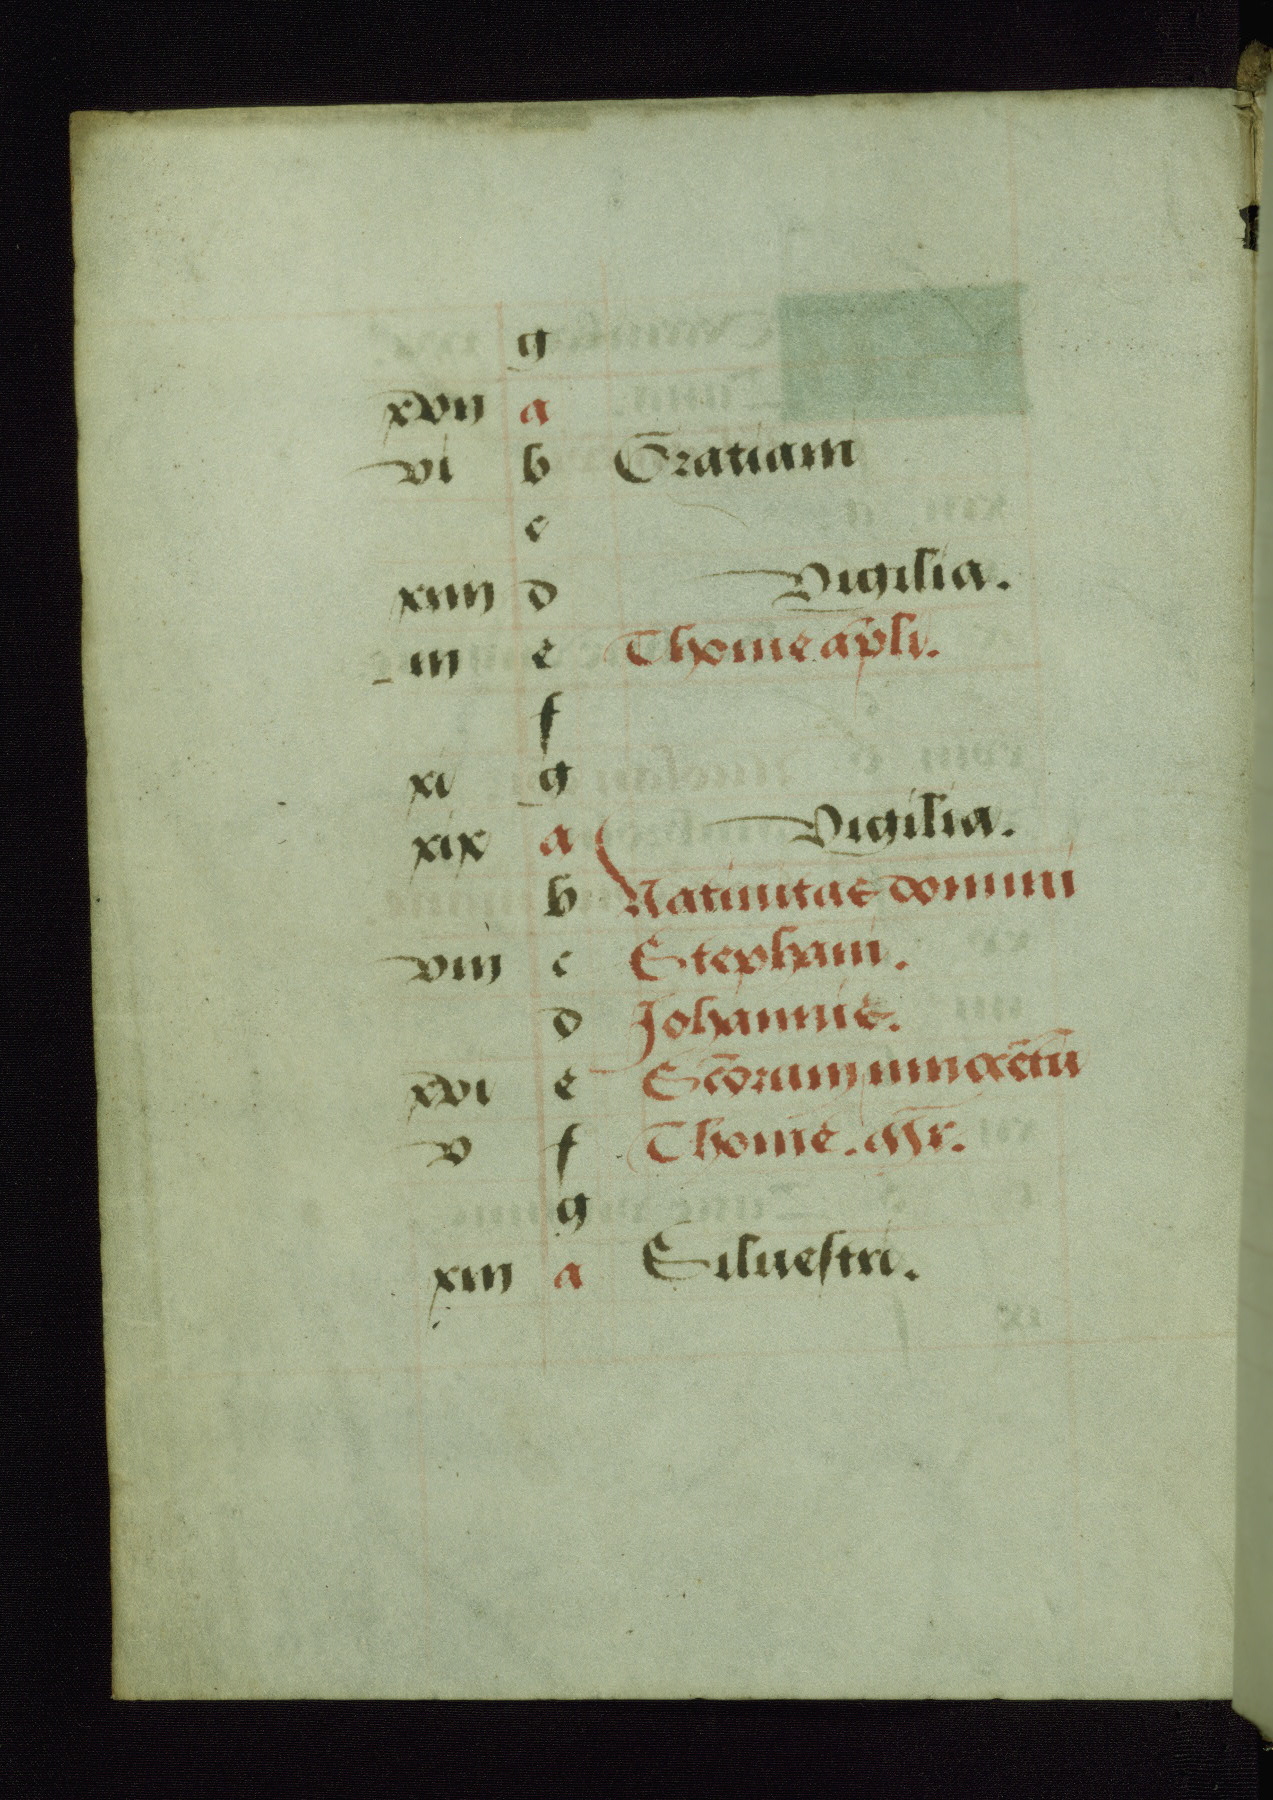 g
xvii a
vi b Gratiam
c
xiiii d Vigilia.
iii e Thome apli.
f
xi g
xix a Vigilia.
b Natiuitas domini
viii c Stephani.
d Johannis.
xvi e Scorum
v f Thome. mr.
g
xiii a Siluestri.